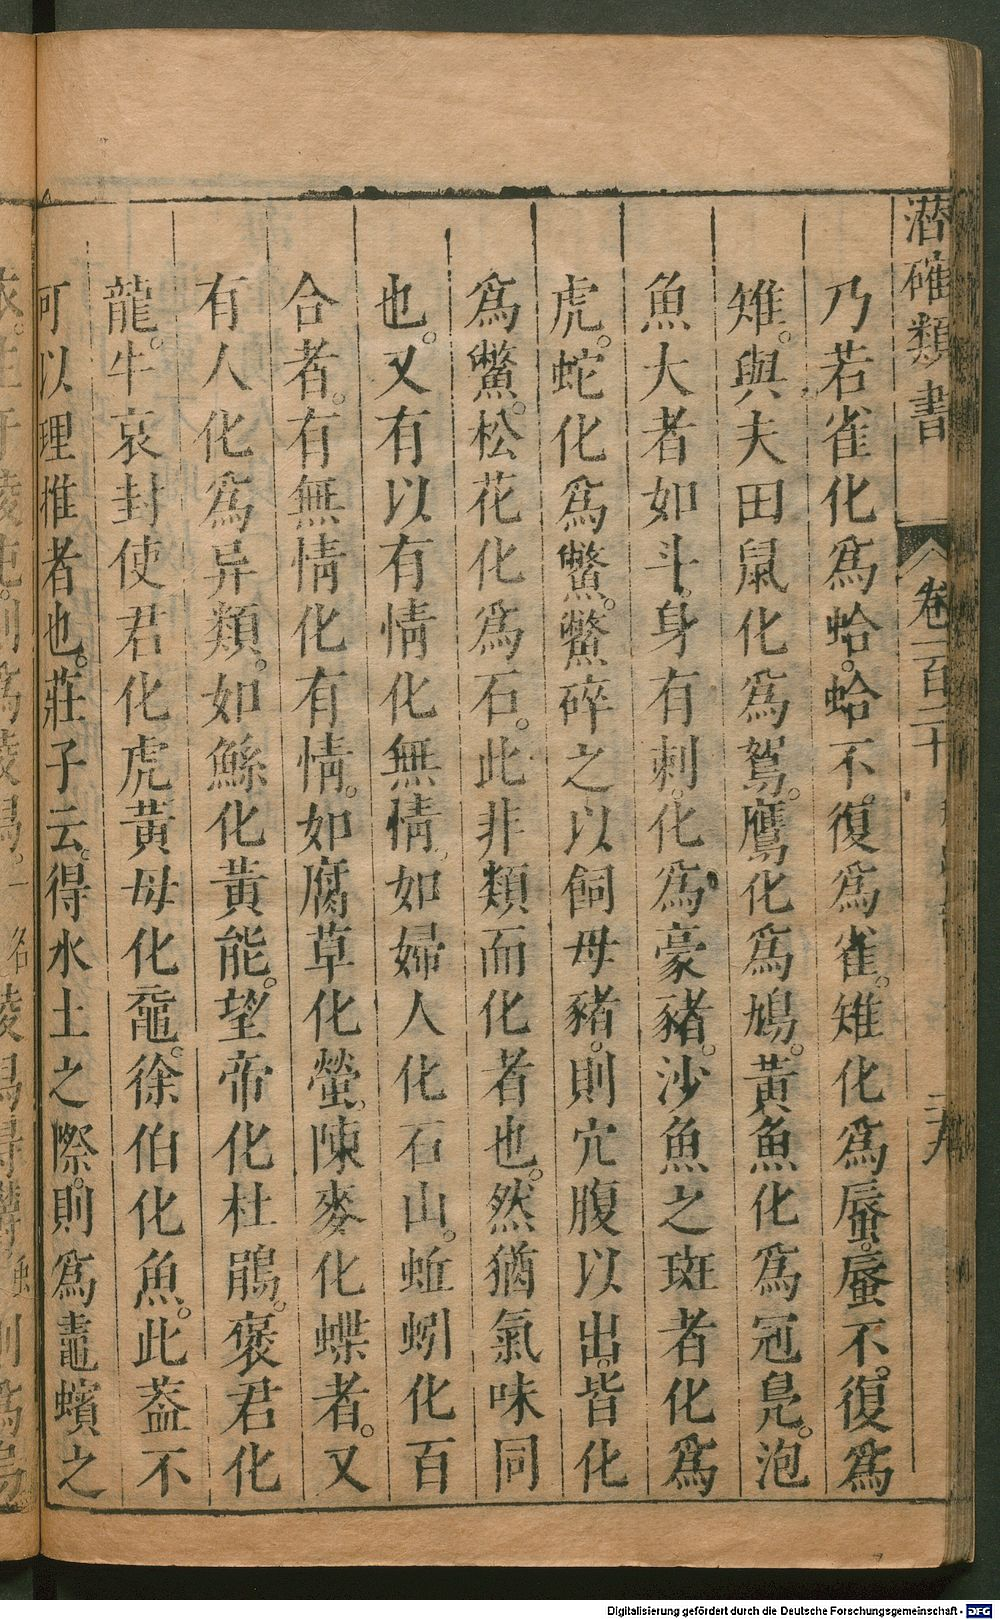 潛確類書 卷一百二十
乃若雀化爲蛤。蛤不復爲雀。雉化爲蜃。蜃不復爲
雉。與夫田鼠化爲鴽。鷹化爲鳩。黃魚化爲冠鳧。泡
魚大者如斗。身有刺。化爲豪豬。沙魚之斑者化爲
虎。蛇化爲鱉。鱉碎之以飼母豬。則穴腹以出。皆化
爲鱉。松花化爲石。此非類而化者也。然猶氣味同
也。又有以有情化無情。如婦人化石山。蚯蚓化百
合者。有無情化有情。如腐草化螢。陳麥化蝶者。又
有人化爲异類。如鯀化黃能。望帝化杜鵑。褒君化
龍。牛哀封使君化虎黃母化黿。徐伯化魚。此葢不
可以理推者也。莊子云。得水土之際。則爲鼃蠙之
Digitalisierung gefördert durch die Deutsche Forschungsgemeinschaft - DFG